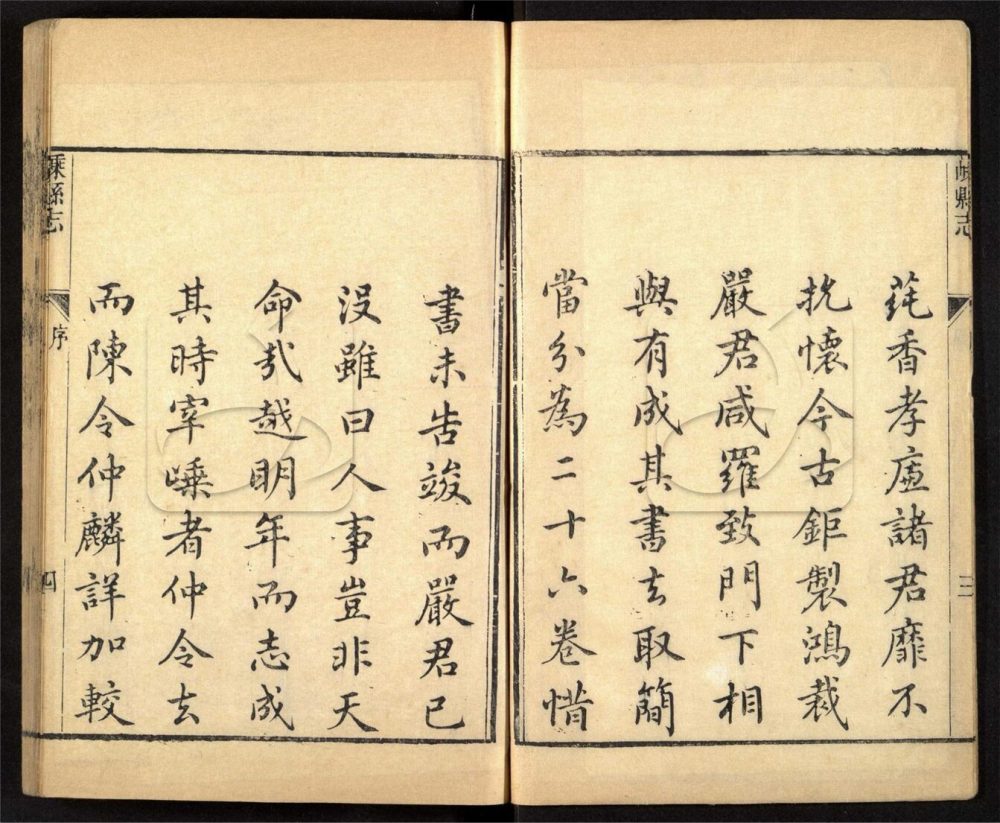 嵊縣志
三
莼香孝廉諸君靡不
抗懷今古鉅製鴻裁
嚴君咸羅致門下相
與有成其書去取簡
當分為二十六卷惜
書未告竣而嚴君已
沒雖曰人事豈非天
命哉越明年而志成
其時宰嵊者仲令去
而陳令仲麟詳加較
嵊縣志
序
四